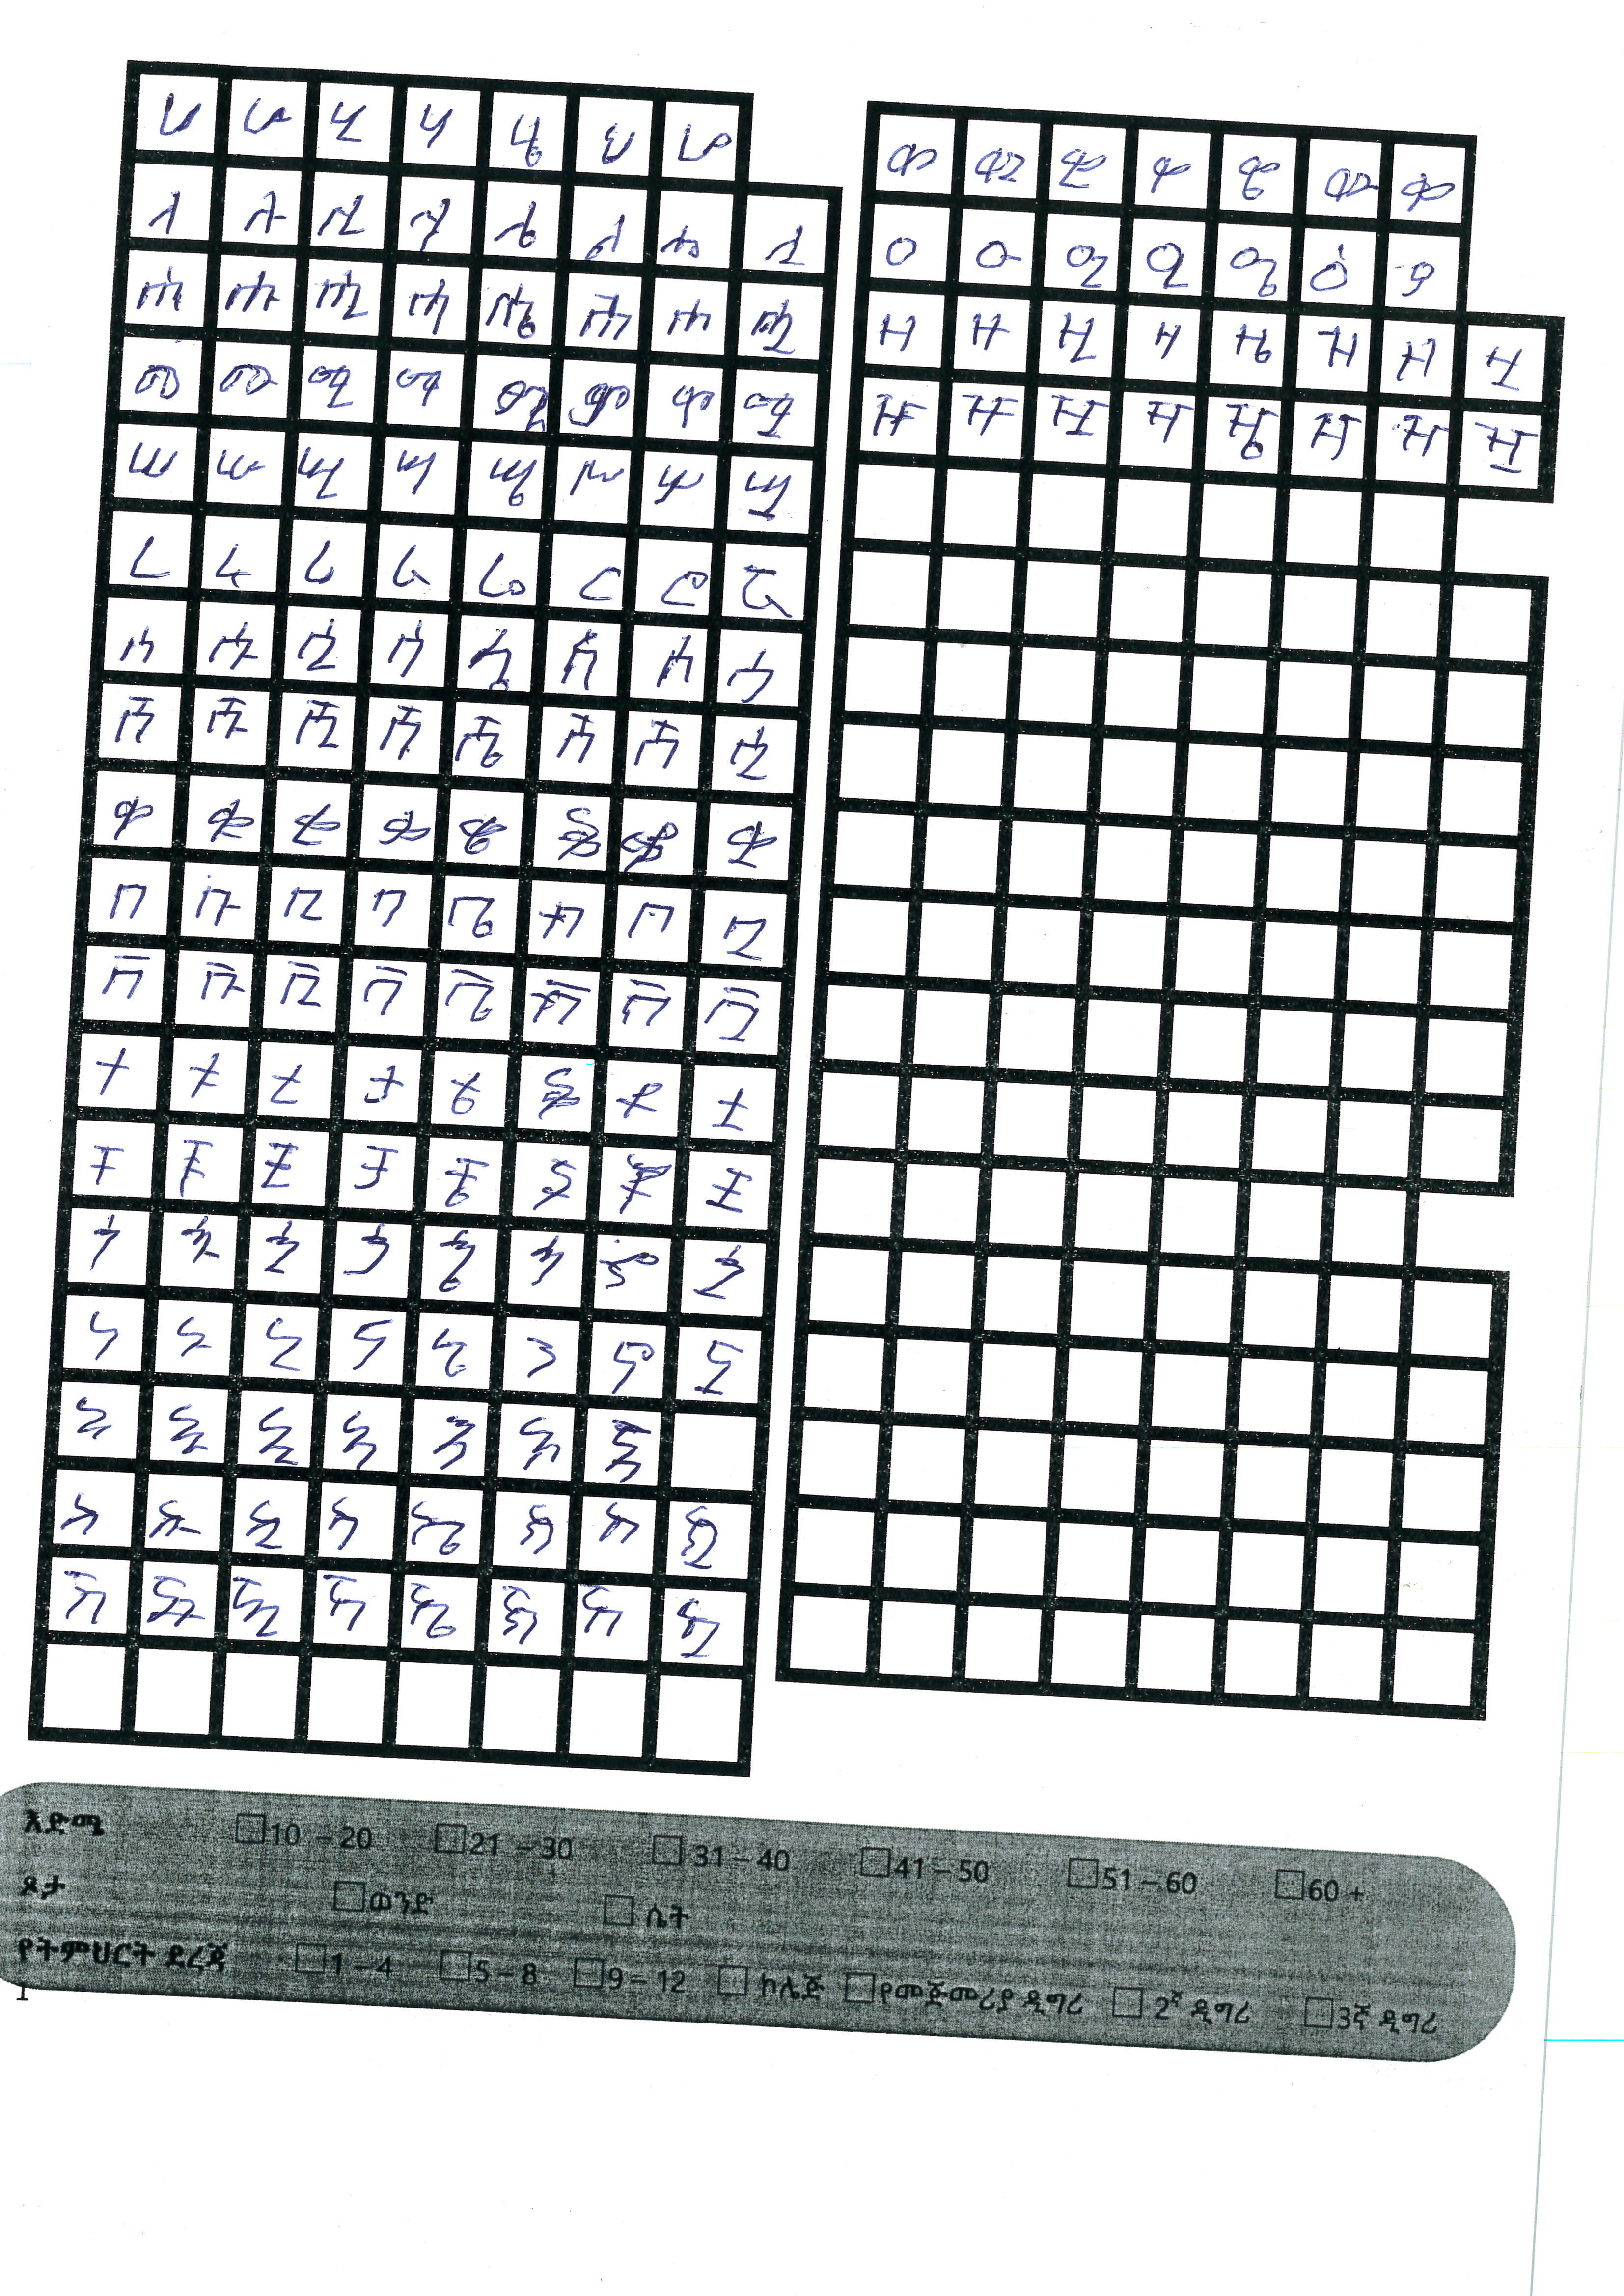 ሀ ሁ ሂ ሃ ሄ ህ ሆ
ለ ሉ ሊ ላ ሌ ል ሎ ሏ
ሐ ሑ ሒ ሓ ሔ ሕ ሖ ሗ
መ ሙ ሚ ማ ሜ ም ሞ ሟ
ሠ ሡ ሢ ሣ ሤ ሥ ሦ ሧ
ረ ሩ ሪ ራ ሬ ር ሮ ሯ
ሰ ሱ ሲ ሳ ሴ ስ ሶ
ሸ ሹ ሺ ሻ ሼ ሽ ሾ
ቀ ቁ ቂ ቃ ቄ ቅ ቆ ቋ
በ ቡ ቢ ባ ቤ ብ ቦ ቧ
ቨ ቩ ቪ ቫ ቬ ቭ ቮ ቯ
ተ ቱ ቲ ታ ቴ ት ቶ ቷ
ቸ ቹ ቺ ቻ ቼ ች ቾ ቿ
ኀ ኁ ኂ ኃ ኄ ኅ ኆ ኋ
ነ ኑ ኒ ና ኔ ን ኖ ኗ
አ ኡ ኢ ኣ ኤ እ ኦ
ከ ኩ ኪ ካ ኬ ክ ኮ ኳ
ኸ ኹ ኺ ኻ ኼ ኽ ኾ
ወ ዉ ዊ ዋ ዌ ው ዎ
ዐ ዑ ዒ ዓ ዔ ዕ ዖ
ዘ ዙ ዚ ዛ ዜ ዝ ዞ ዟ
ዠ ዡ ዢ ዣ ዤ ዥ ዦ ዧ
እድሜ 10 – 20 21 – 30 31 – 40 41 – 50 51 – 60 60 +
ጾታ ወንድ ሴት
የትምህርት ደረጃ 1 – 4 5 – 8 9 – 12 ኮሌጅ የመጀመሪያ ዲግሪ 2ኛ ዲግሪ 3ኛ ዲግሪ
1